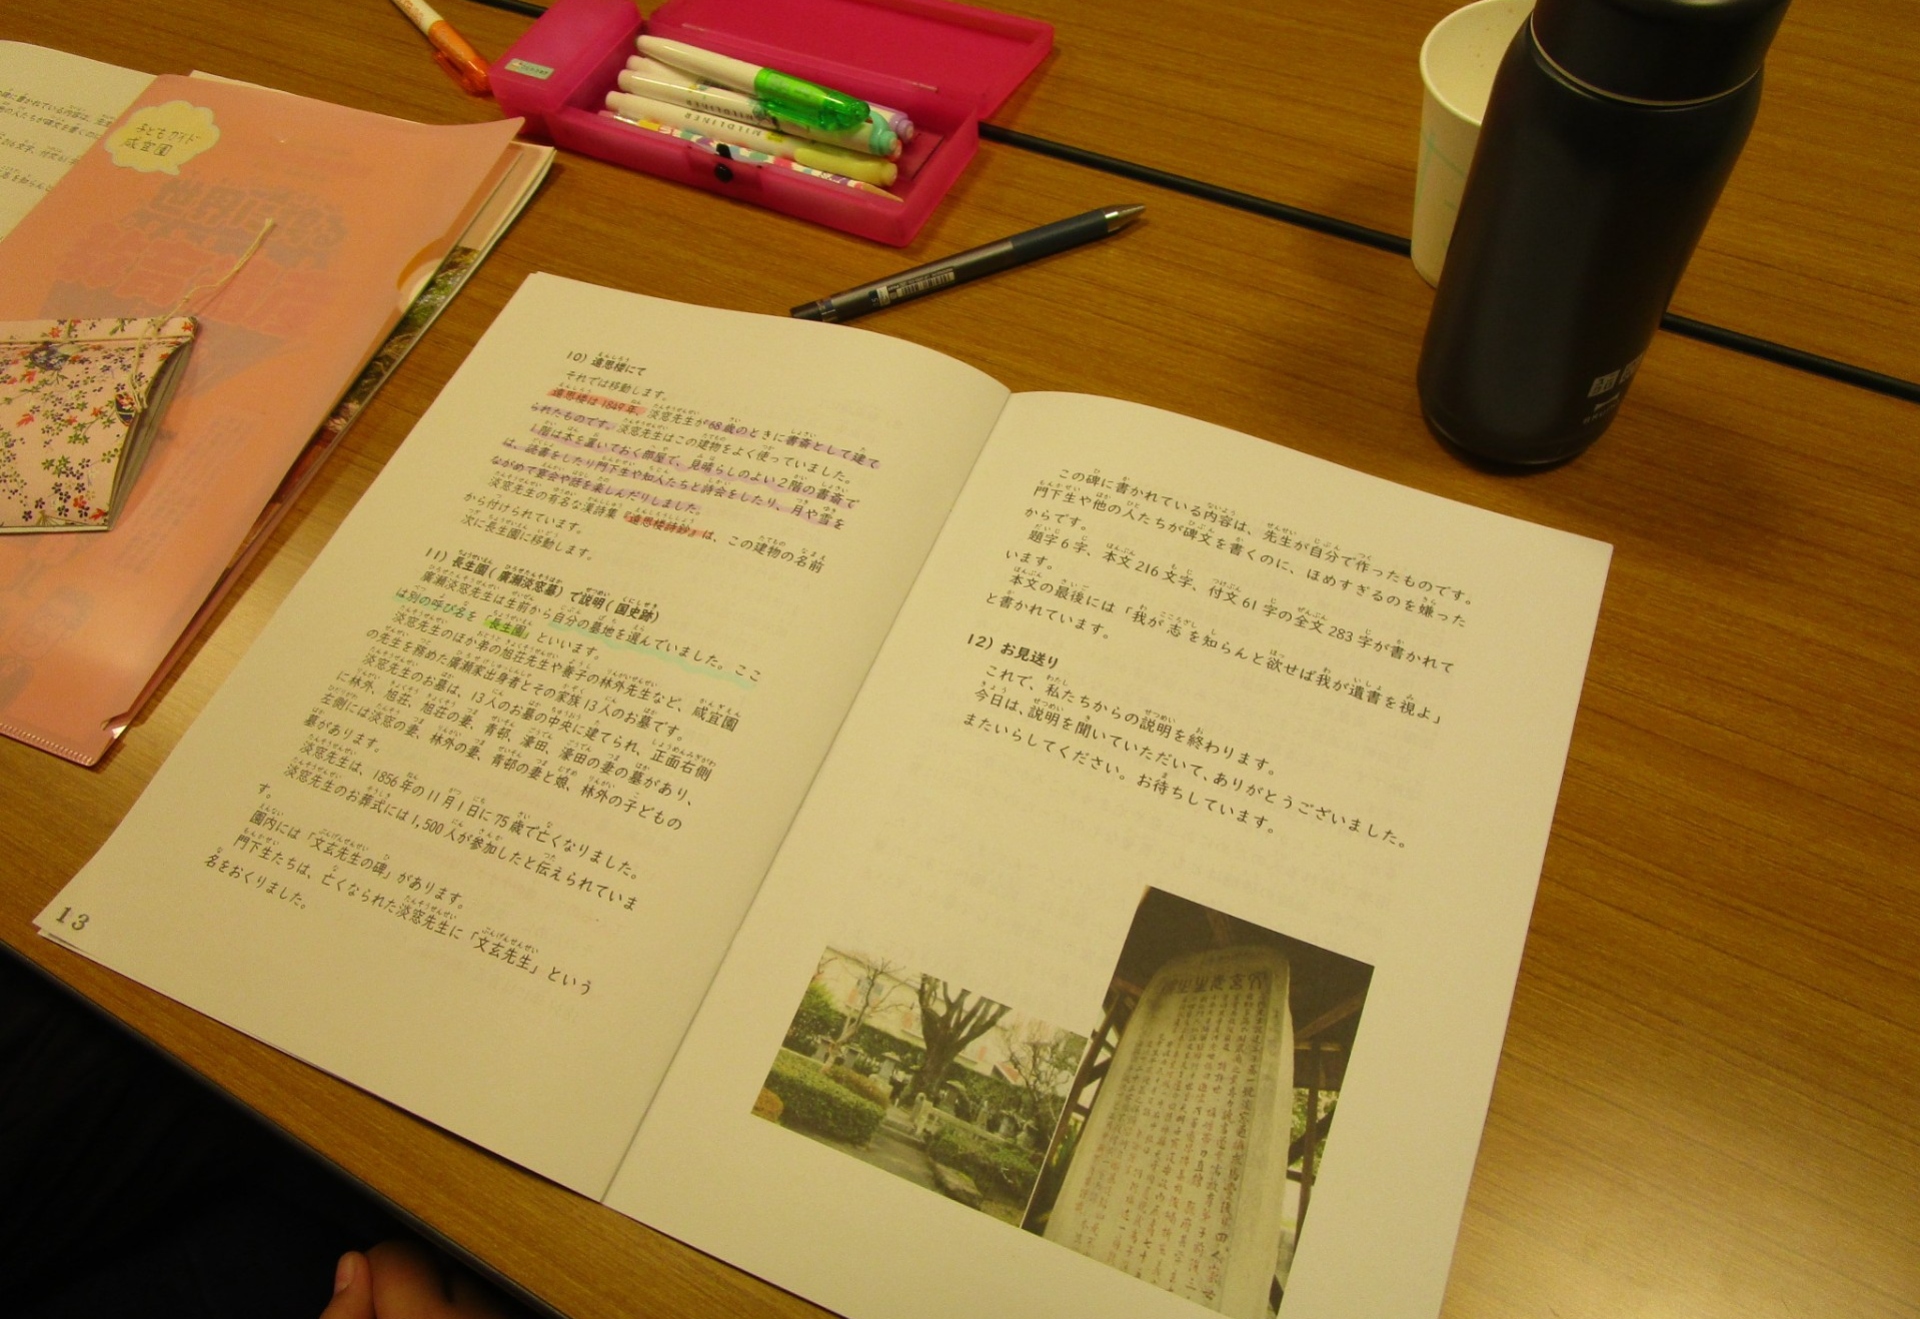 子どもガイド
咸宜園
MILDLINER
10）遠思楼にて
それでは移動します。
遠思楼は1849年、淡窓先生が68歳のときに書斎として建て
られたものです。淡窓先生はこの建物をよく使っていました。
1階は本を置いておく部屋で、見晴らしのよい2階の書斎で
は、読書をしたり門下生や知人たちと詩会をしたり、月や雪を
ながめて宴会や話を楽しんだりしました。
淡窓先生の有名な漢詩集『遠思楼詩鈔』は、この建物の名前
から付けられています。
次に長生園に移動します。
11）長生園（廣瀬淡窓墓）で説明（国史跡）
廣瀬淡窓先生は生前から自分の墓地を選んでいました。ここ
は別の呼び名を「長生園」といいます。
淡窓先生のほか弟の旭荘先生や養子の林外先生など、咸宜園
の先生を務めた廣瀬家出身者とその家族13人のお墓です。
淡窓先生のお墓は、13人のお墓の中央に建てられ、正面右側
に林外、旭荘、旭荘の妻、青邨、濠田、濠田の妻の墓があり、
左側には淡窓の妻、林外の妻、青邨の妻と娘、林外の子どもの
墓があります。
淡窓先生は、1856年の11月1日に75歳で亡くなりました。
淡窓先生のお葬式には1,500人が参加したと伝えられていま
す。
園内には「文玄先生の碑」があります。
門下生たちは、亡くなられた淡窓先生に「文玄先生」という
名をおくりました。
13
この碑に書かれている内容は、先生が自分で作ったものです。
門下生や他の人たちが碑文を書くのに、ほめすぎるのを嫌った
からです。
題字6字、本文216文字、付文61字の全文283字が書かれて
います。
本文の最後には「我が志を知らんと欲せば我が遺書を視よ」
と書かれています。
12）お見送り
これで、私たちからの説明を終わります。
今日は、説明を聞いていただいて、ありがとうございました。
またいらしてください。お待ちしています。